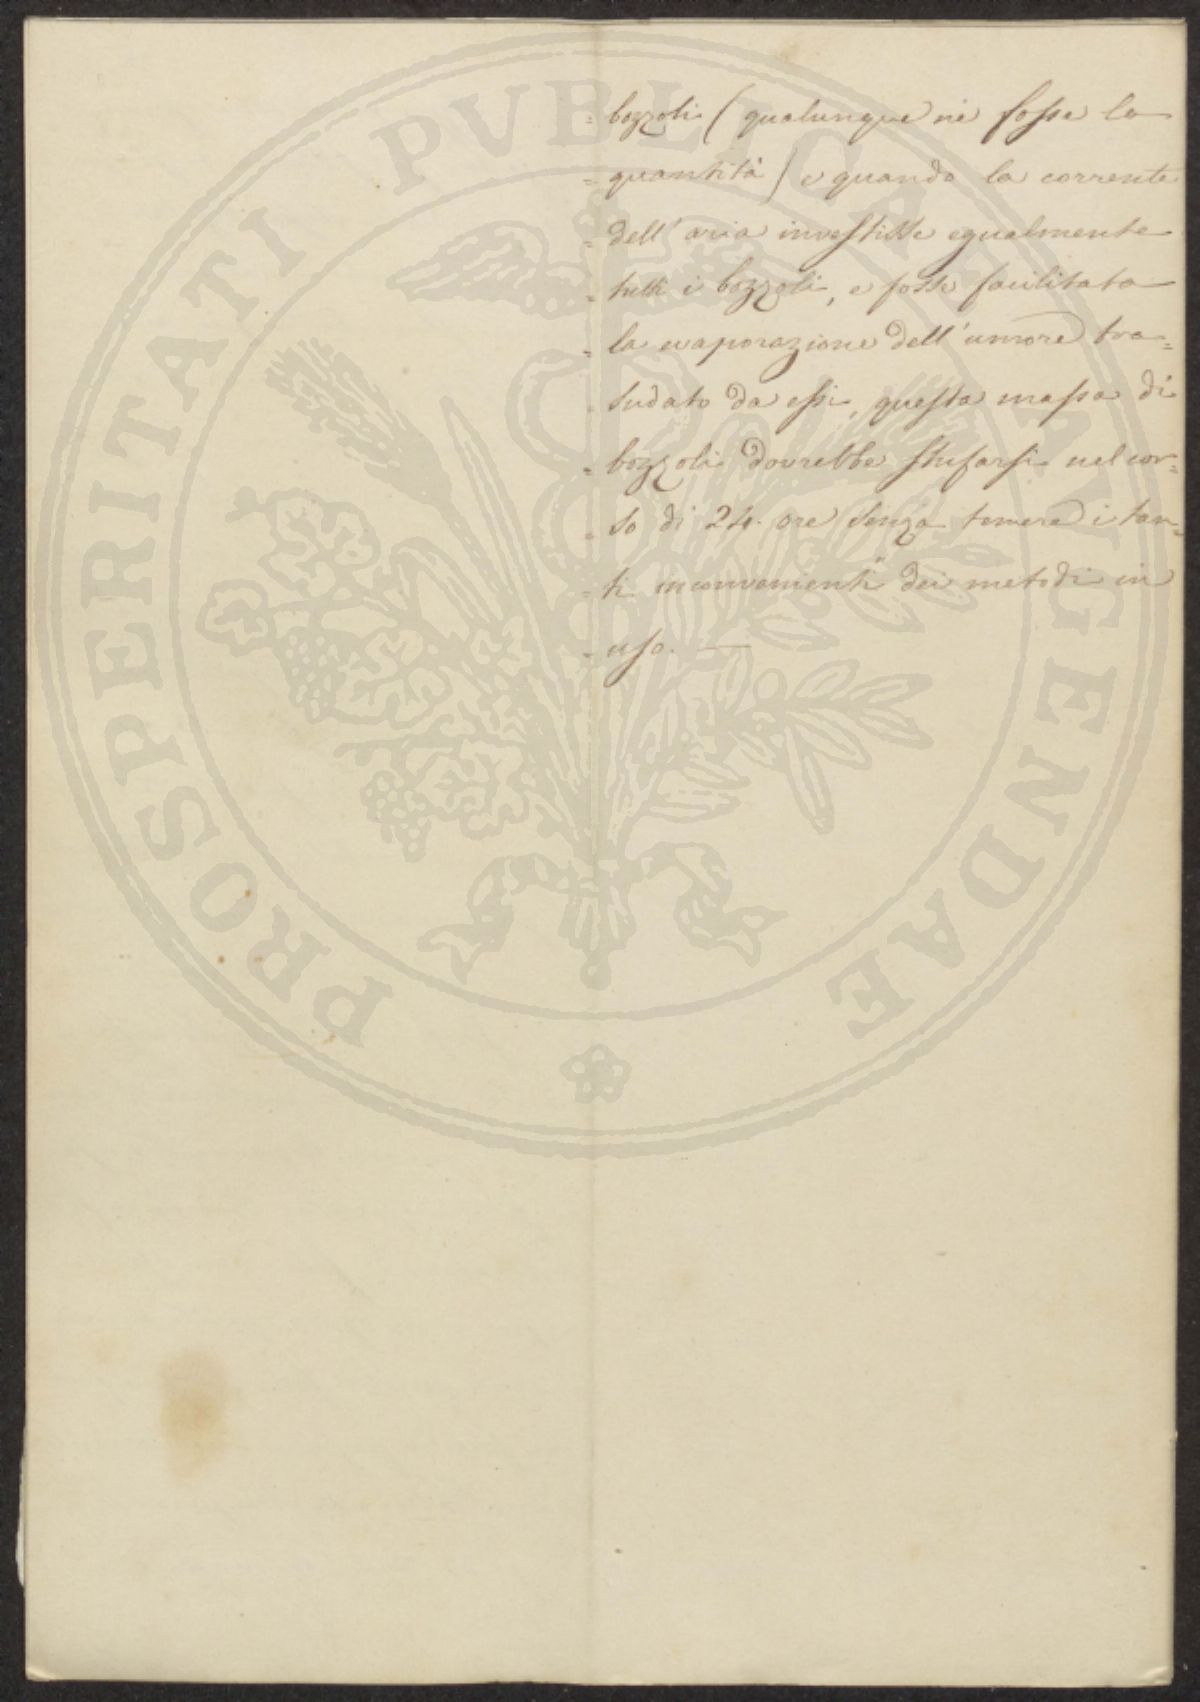 = bozzoli (qualunque ne fosse la
= quantità) e quando la corrente
= dell'aria investisse egualmente
= tutti i bozzoli, e fosse facilitata
= la evaporazione dell'umore tra=
= sudato da essi, questa massa di
= bozzoli dovrebbe stufarsi nel cor=
= so di 24. ore senza temere i tan=
= ti inconvenienti dei metodi in
= uso. —
PROSPERITATI PVBLICAE AVGENDAE